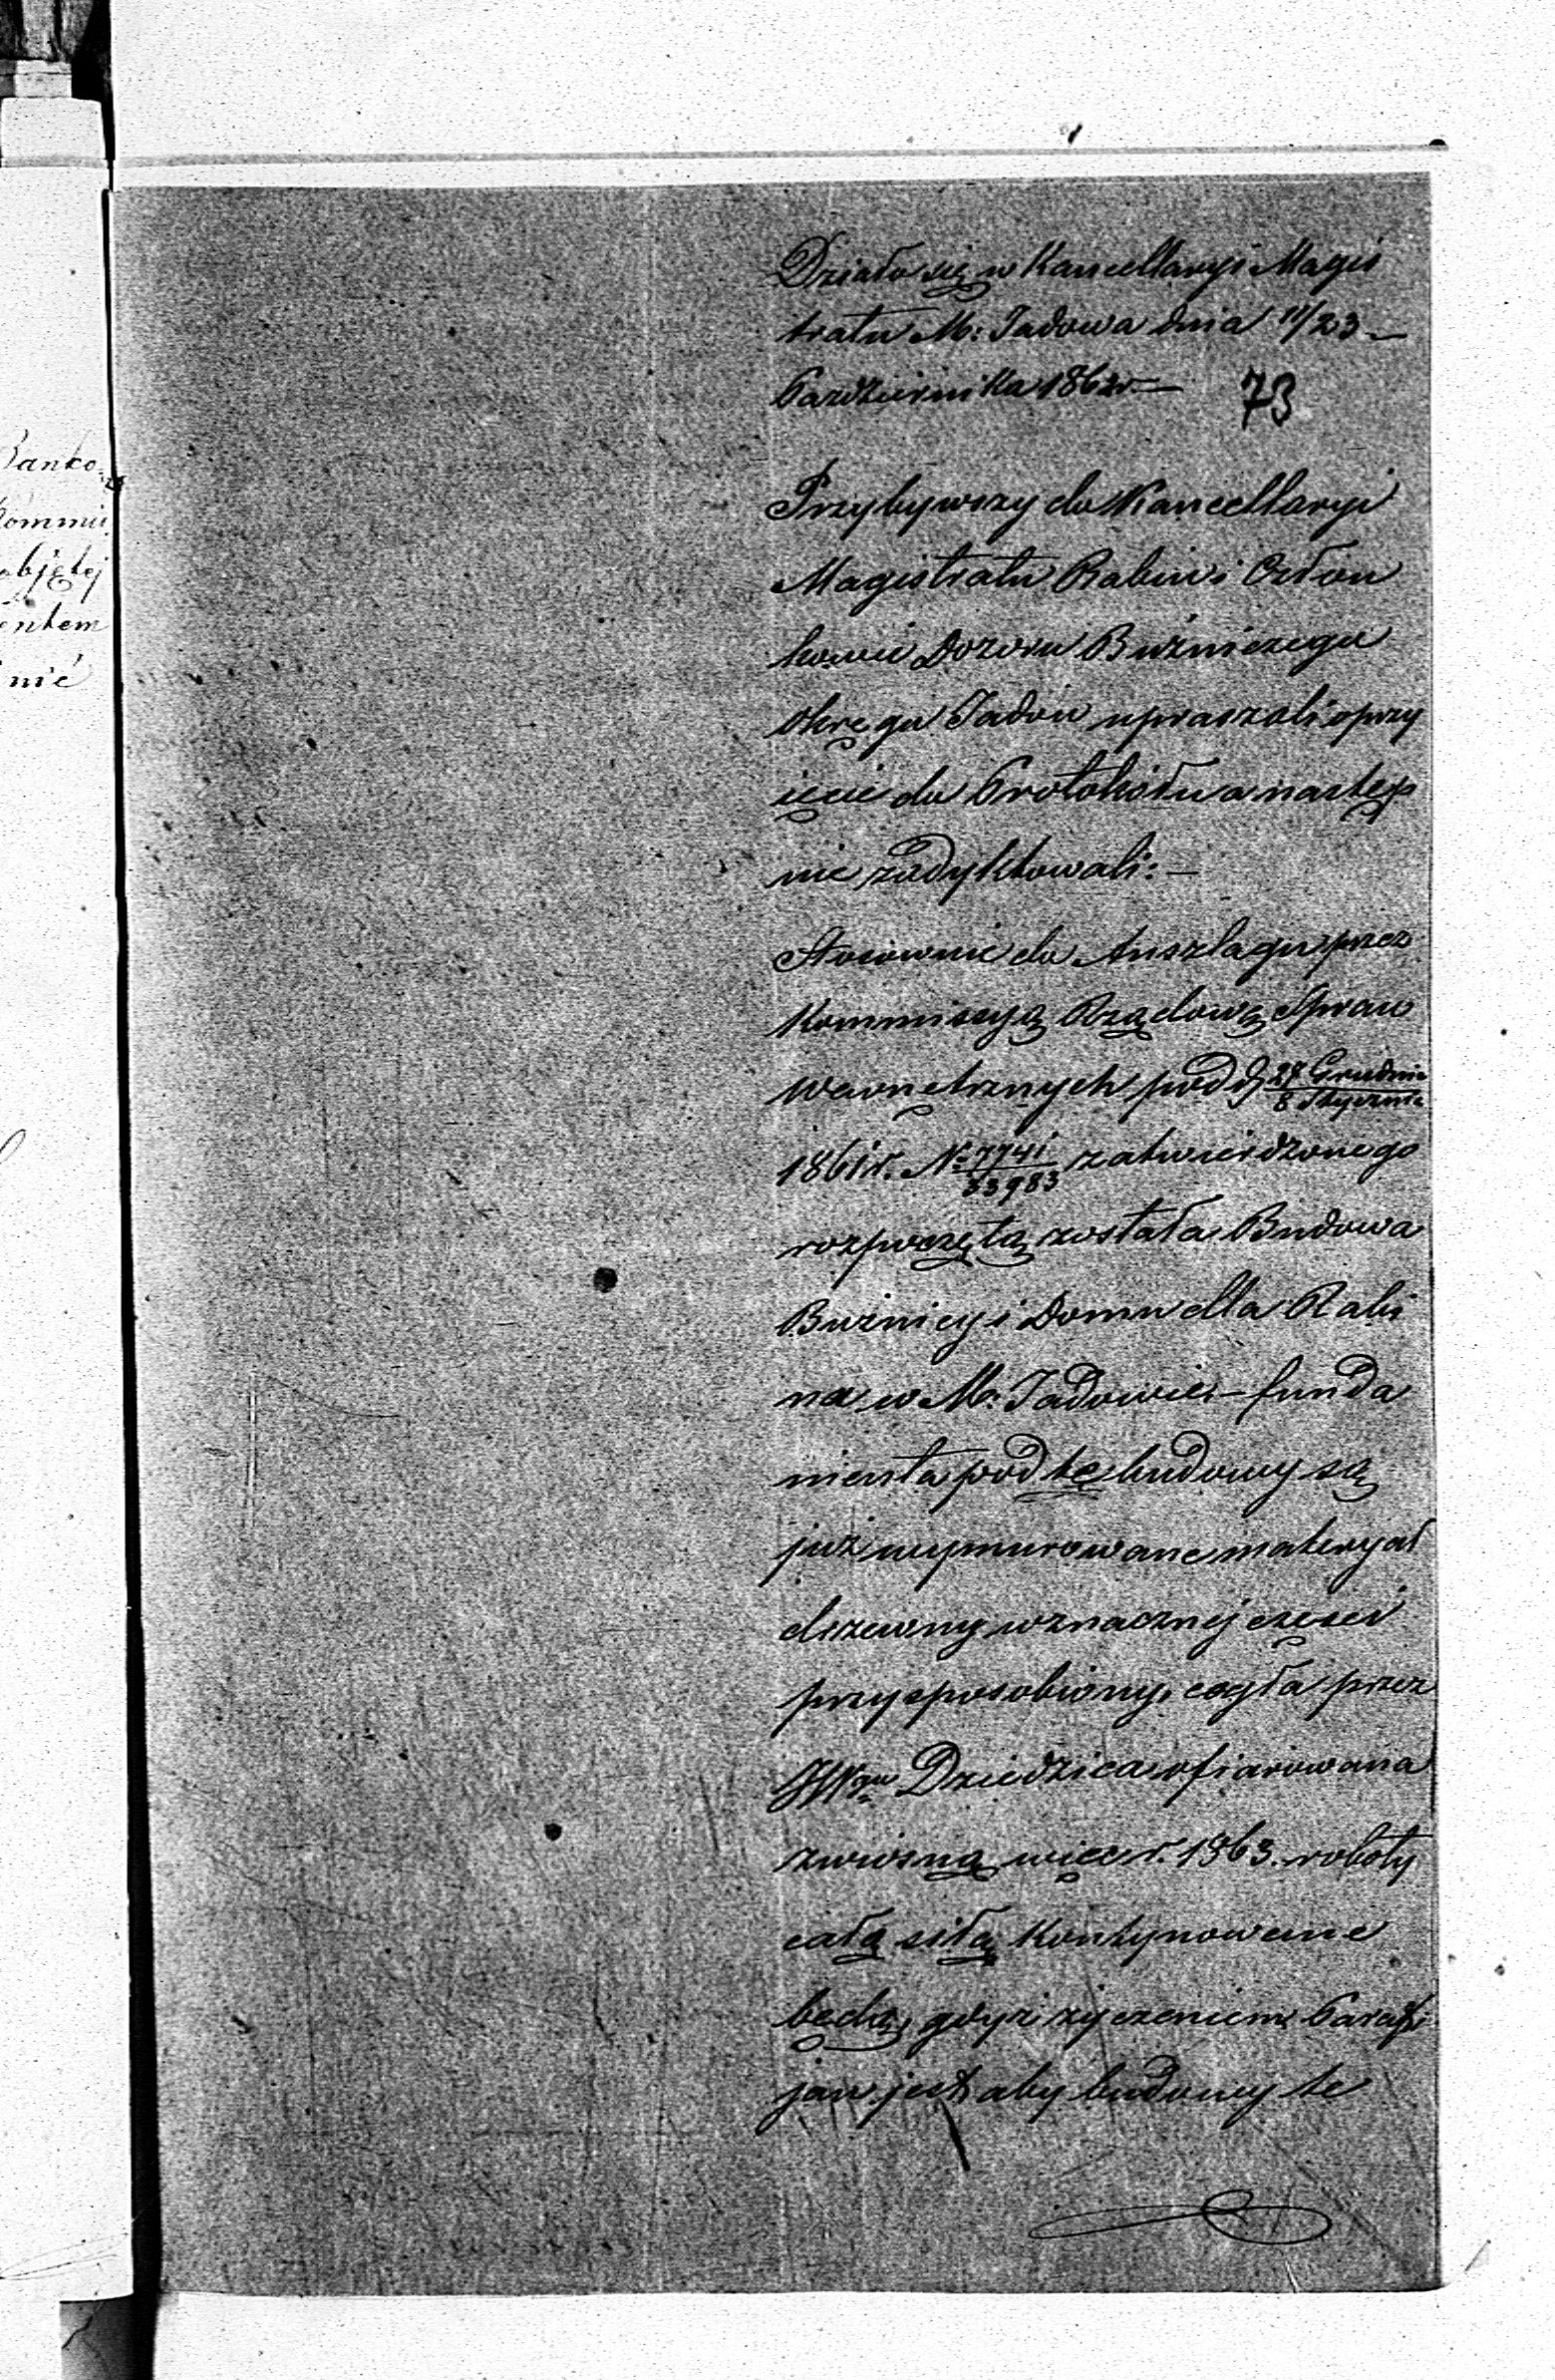 Działo się w Kancellaryi Magis
tratu M: Jadowa dnia 11/23 –
Pazdziernika 1862r –
73
Przybywszy do Kancellaryi
Magistratu Rabin i Człon
kowie Dozoru Bużniczego
Okręgu Jadow upraszali o przy
ięcie do Protokółu a następ
nie zadyktowali: –
Stosownie do Anszlagu przez
Kommissyą Rządową Spraw
Wewnetrznych pod d 27 Grudnia / 8 Stycznia
1861r. No 7741 / 33983 zatwierdzonego
rozpoczętą została Budowa
Bużnicy i Domu dla Rabi
na w M: Jadowie, – funda
menta pod tę budowy są
już wymurowane materyał
drzewny w znacznej części
przysposobiony, cegła przez
JWgo Dziedzica ofiarowana
z wiosną więc r. 1863. roboty
całą siłą kontynowane
będą, gdyż życzeniem Parafi
jan jest aby budowy te
Banko
Kommis
objętej
entem
nić